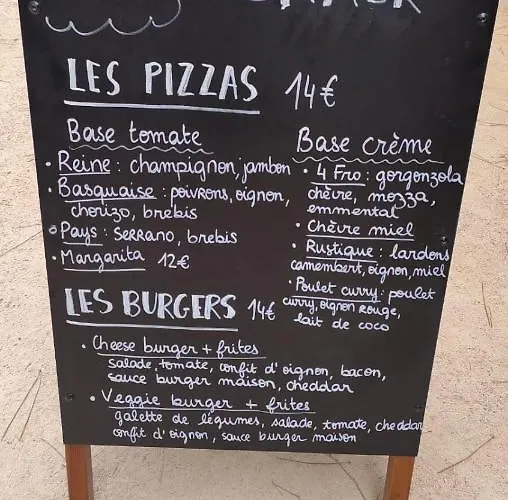 LES PIZZAS 14€
Base tomate
• Reine : champignon, jambon
• Basquaise : poivrons, oignon,
chorizo, brebis
• Pays : SERRANO, brebis
• Margarita 12€
Base crème
• 4 Fro : gorgonzola
chèvre, mozza,
emmental
• Chèvre miel
• Rustique : lardons
camembert, oignon, miel
• Poulet curry : poulet
curry, oignon Rouge,
lait de coco
LES BURGERS 14€
• Cheese burger + frites
salade, tomate, confit d'oignon, bacon,
sauce burger maison, cheddar
• Veggie burger + frites
galette de légumes, salade, tomate, cheddar
confit d'oignon, sauce burger maison